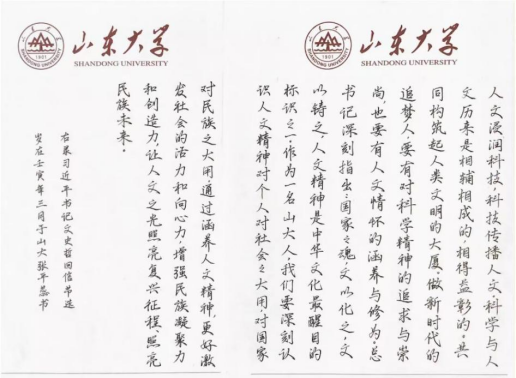 山东大学
SHANDONG UNIVERSITY
1901
人文浸润科技,科技传播人文,科学与人
文历来是相辅相成的,相得益彰的,共
同构筑起人类文明的大厦。做新时代的
追梦人,要有对科学精神的追求与崇
尚,也要有人文情怀的涵养与修为。总
书记深刻指出:国家之魂,文以化之,文
以铸之。人文精神是中华文化最醒目的
标识之一,作为一名山大人,我们要深刻认
识人文精神对个人、对社会之大用,对国家
山东大学
SHANDONG UNIVERSITY
1901
对民族之大用,通过涵养人文精神,更好激
发社会的活力和向心力,增强民族凝聚力
和创造力,让人文之光照亮复兴征程,照亮
民族未来。
右录习近平书记文史哲回信节选
岁在壬寅年三月于山大张平书